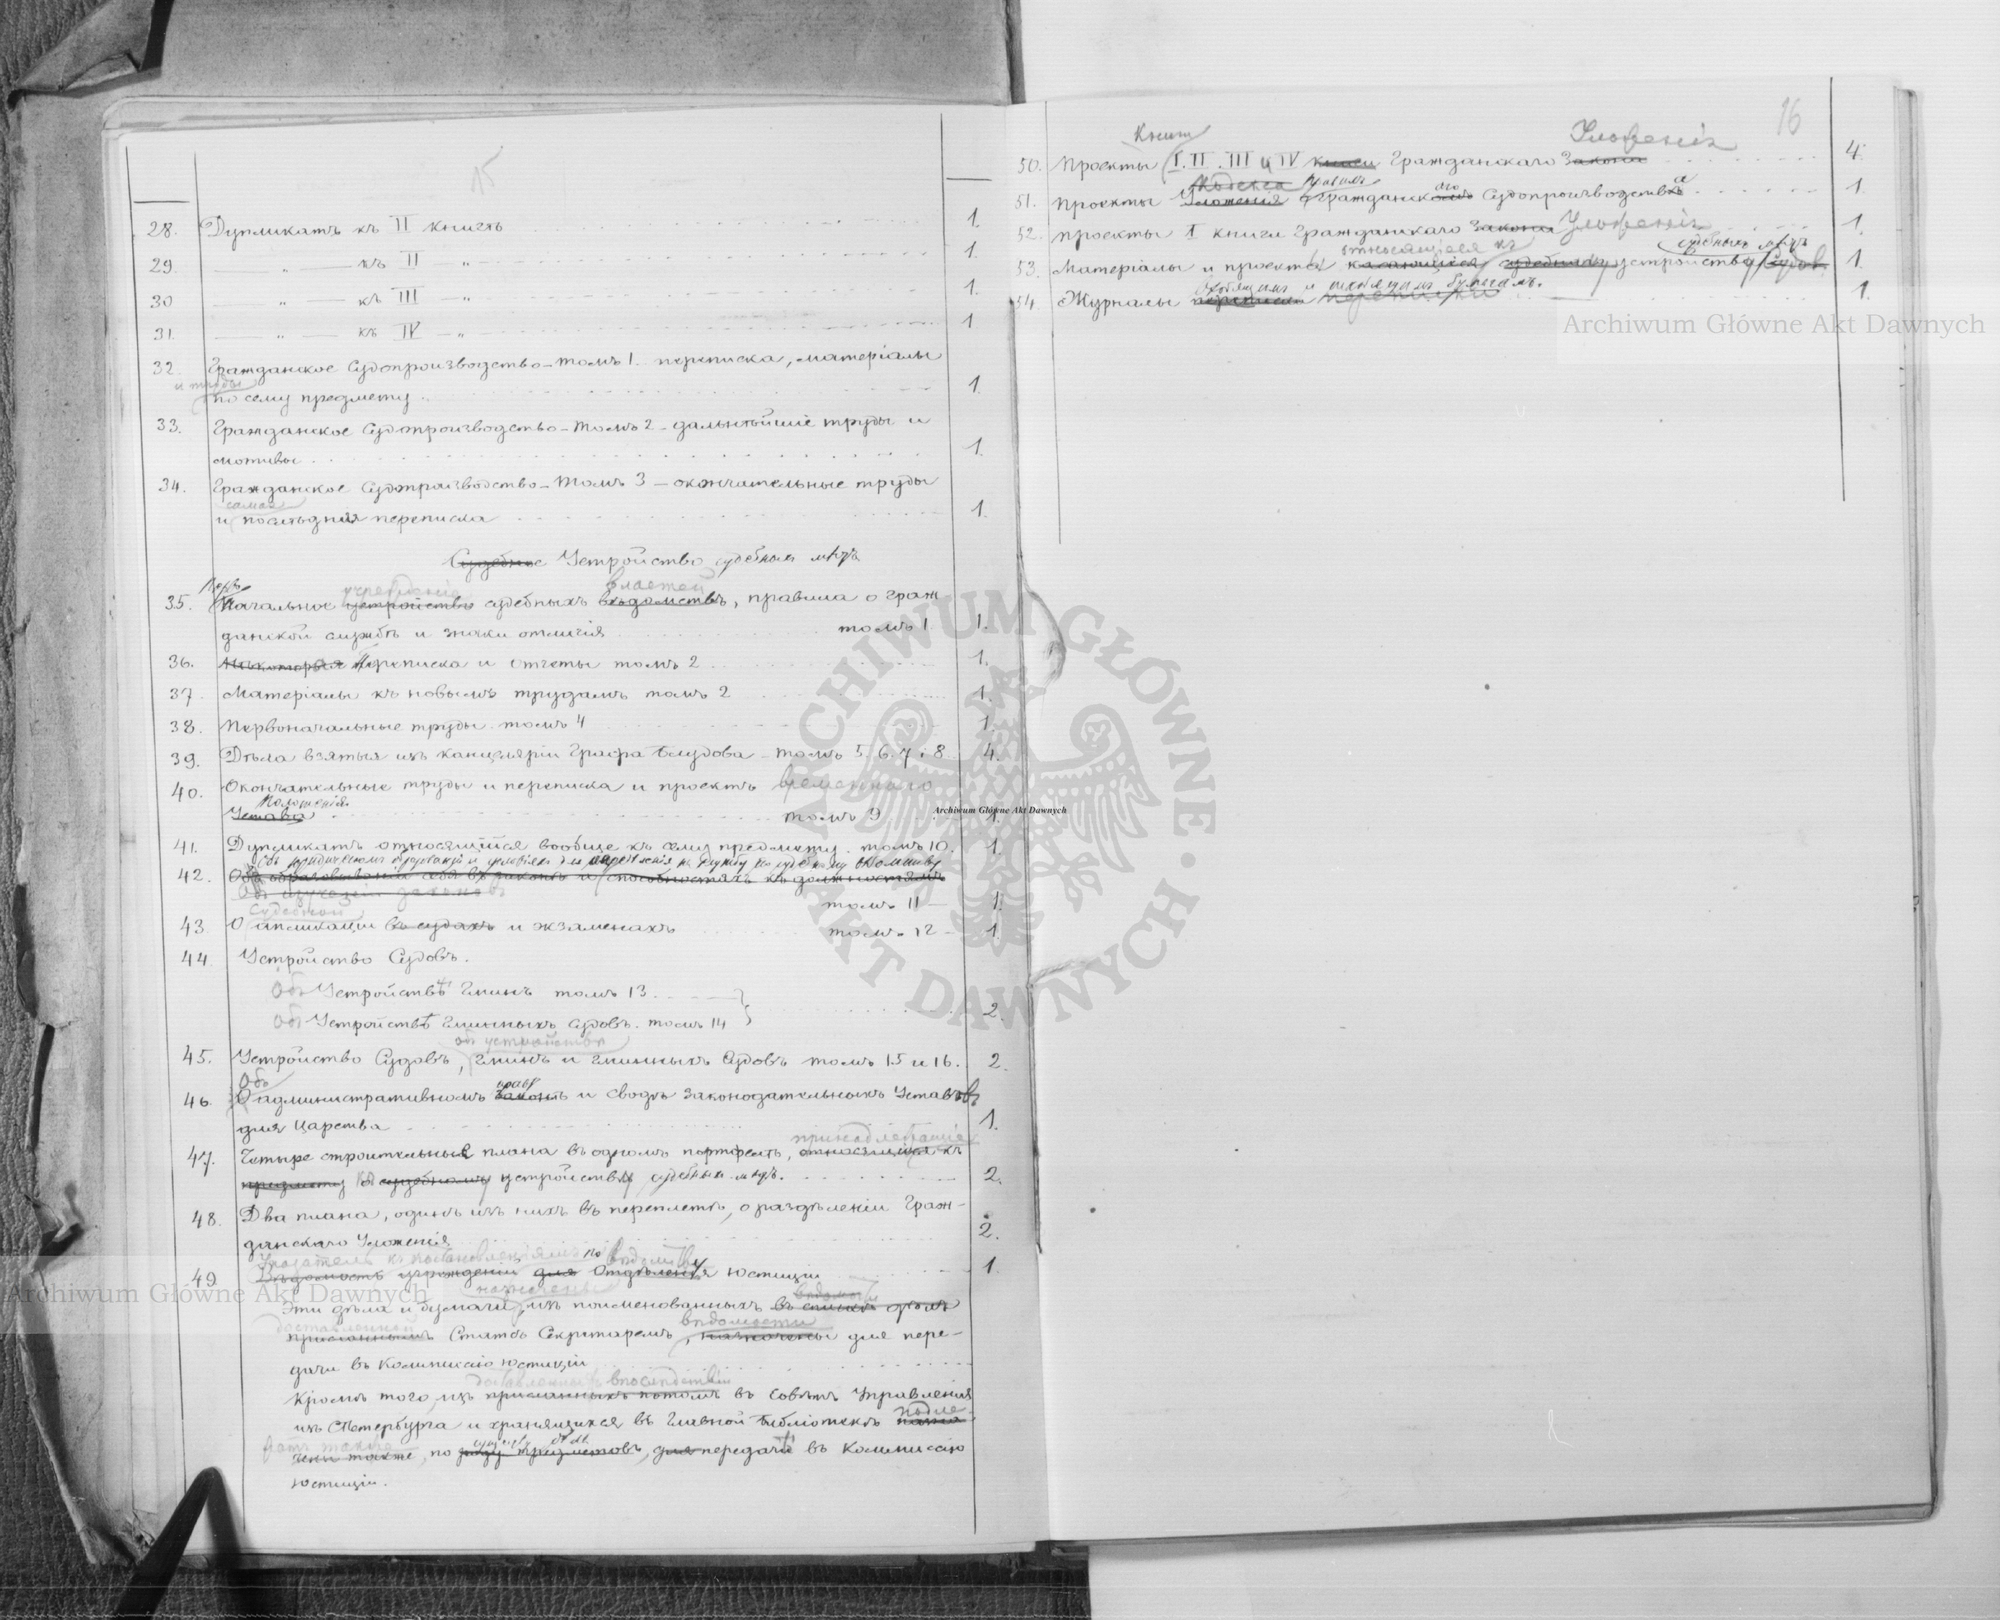 15
28. Дупликатъ къ II книгѣ 1.
29 — „ — къ II — „ 1.
30 — „ — къ III — „ 1.
31. — „ — къ IV — „ 1
32. Гражданское Судопроизводство – томъ 1. переписка, матеріалы
и труды
по сему предмету 1.
33. Гражданское Судопроизводство – томъ 2 – дальнѣйшіе труды и
мотивы 1.
34. Гражданское Судопроизводство – томъ 3 – окончательные труды
самая
и послѣдняя переписка 1.
Судебное Устройство судебныхъ мѣстъ
Перво учрежденіе властей
35. Начальное устройство судебныхъ вѣдомствъ, правила о граж-
данской службѣ и знаки отличія томъ 1. 1.
36. Нѣкоторыя Переписка и отчеты томъ 2 1.
37. Матеріалы къ новымъ трудамъ томъ 2 1.
38. Первоначальные труды. томъ 4 1.
39. Дѣла взятыя изъ канцеляріи Графа Блудова – томъ 5, 6, 7 и 8 4.
40. Окончательные труды и переписка и проектъ временнаго
Положенія
Устава томъ 9 1.
41. Дупликатъ относящійся вообще къ сему предмету. томъ 10. 1.
Объ юридическомъ образованіи и условіяхъ для опредѣленія на службу по судебному вѣдомству
42. Объ образованіи себя въ законѣ и способностяхъ къ должностямъ
Объ изученіи законовъ
томъ 11 – 1.
Судебной
43. О апликаціи въ судахъ и экзаменахъ томъ 12 – 1.
44. Устройство Судовъ.
Объ Устройствѣ Гминъ томъ 13
Объ Устройствѣ Гминныхъ Судовъ. томъ 14 2.
объ устройствѣ
45. Устройство Судовъ, Гминъ и Гминныхъ Судовъ томъ 15 и 16. 2.
Объ правѣ
46. О административномъ законѣ и Сводѣ Законодательныхъ Уставовъ
для Царства 1.
принадлежащіе
47. Четыре строительные плана въ одномъ портфелѣ, относящіеся къ
предмету о судебному устройству судебныхъ мѣстъ. 2.
48. Два плана, одинъ изъ нихъ въ переплетѣ, о раздѣленіи Граж-
данскаго Уложенія 2.
Указатель къ постановленіямъ по вѣдомству
49. Вѣдомость учрежденій для Отдѣленія Юстиціи 1.
назначены вѣдомости
Эти дѣла и бумаги, изъ поименованныхъ въ спискѣ дѣлъ
доставленной вѣдомости
присланнымъ Статсъ Секретаремъ, назначены для пере-
дачи въ Коммиссію юстиціи
доставленныхъ впослѣдствіи
Кромѣ того, изъ присланныхъ потомъ въ Совѣтъ Управленія
изъ СПетербурга и хранящихся въ Главной Библіотекѣ
подле-
жатъ также
чены также, по роду предметовъ, для передачи въ Коммиссію
юстиціи.
16
Книгъ Уложенія
50. Проекты I. II. III и IV книги Гражданскаго Закона 4.
Кодекса
51. Проекты Уложенія Гражданскаго Судопроизводства 1.
52. Проекты I книги Гражданскаго Закона Уложенія 1.
относящіеся къ судебныхъ мѣстъ
53. Матеріалы и проекты касающіеся судебному устройству Судов. 1.
входящимъ и исходящимъ бумагамъ.
54. Журналы переписки переписки 1.
Archiwum Główne Akt Dawnych
Archiwum Główne Akt Dawnych
Archiwum Główne Akt Dawnych
ARCHIWUM GŁÓWNE · AKT DAWNYCH ·